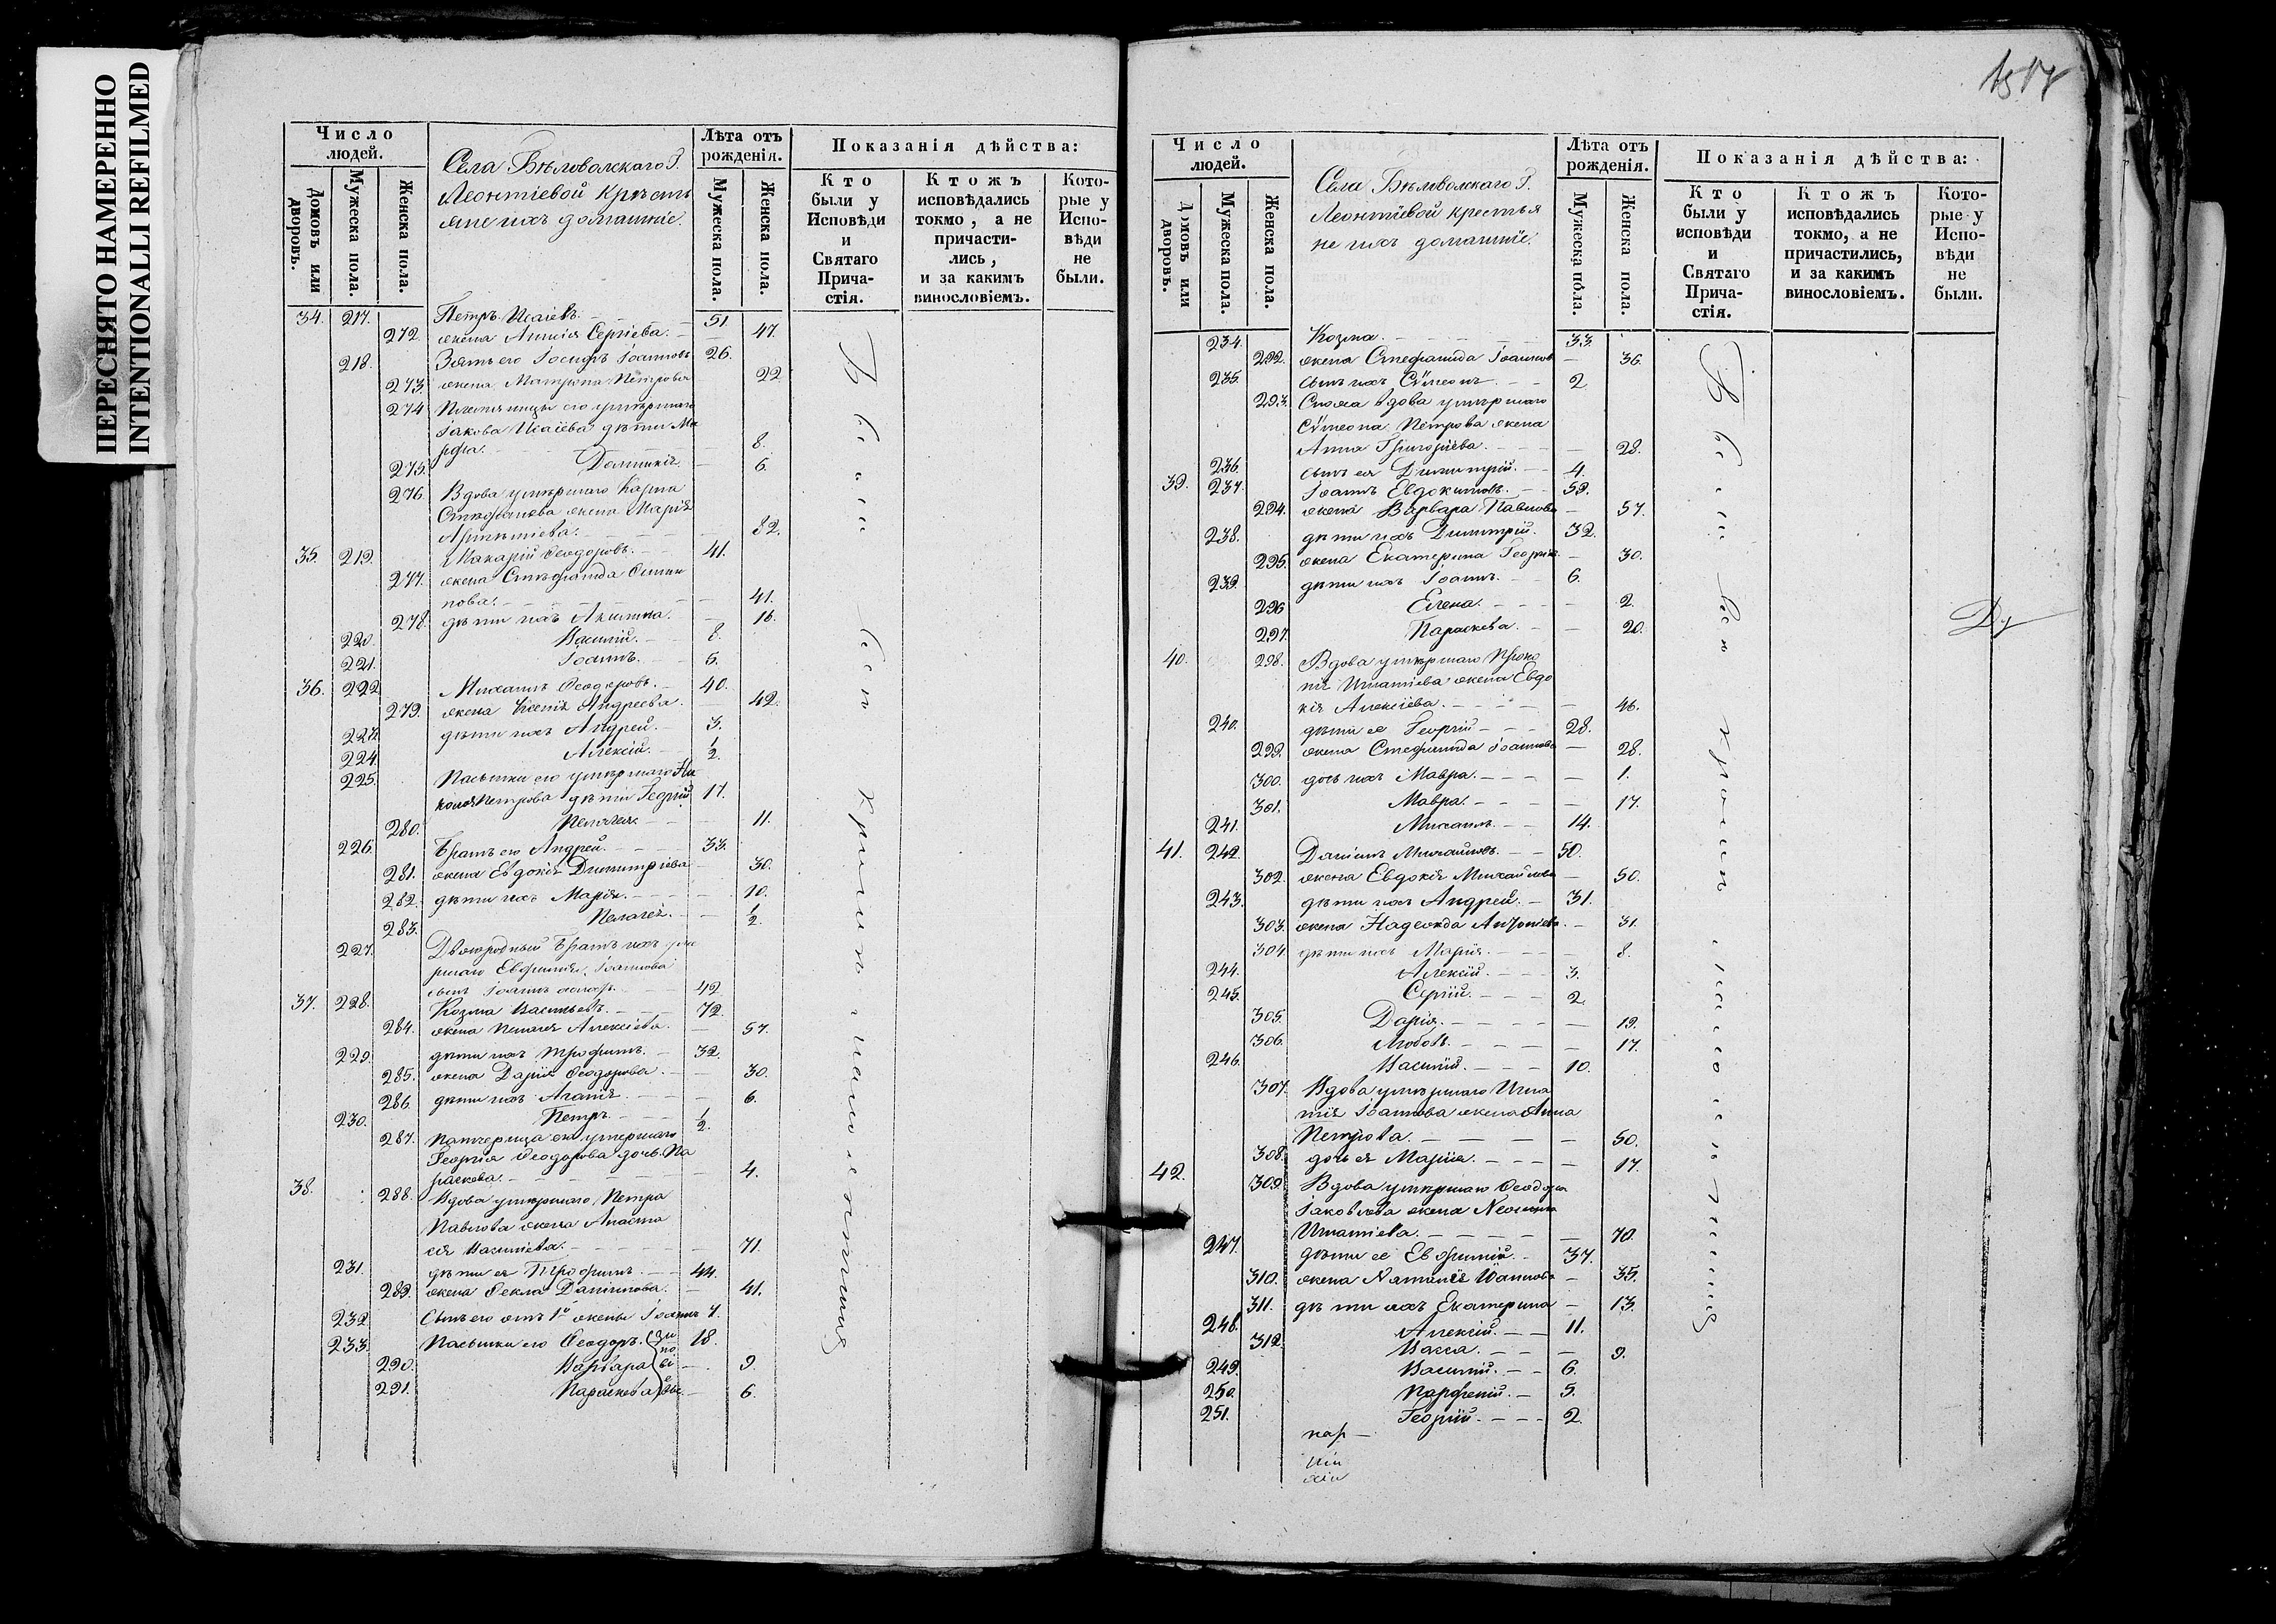 ПЕРЕСНЯТО НАМЕРЕННО
INTENTIONALLI REFILMED
Число людей.
Домовъ или дворовъ.
Мужеска пола.
Женска пола.
Села Бѣловолскаго Г.
Леонтіевой крѣстья
яне ихъ домашніе.
Лѣта отъ рожденія.
Мужеска пола.
Женска пола.
Показанія дѣйства:
Кто были у Исповѣди и Святаго Прича-стія.
Ктожъ исповѣдались токмо, а не причасти-лись, и за какимъ винословіемъ.
Кото-рые у Испо-вѣди не были.
34. 217. Петръ Исаіевъ. 51.
272. жена Анисія Сергіева. 47.
218. Зять его Іосифъ Іоанновъ 26.
273. жена Матрона Петрова 22
274 Племянницы его умершаго
Іакова Исаіева дѣти Ма
рфа. 8.
275. Домникія. 6.
276. Вдова умершаго Карпа
Стефанова жена Марія
Артемьева. 82.
35. 219. Макарій Ѳеодоровъ. 41.
277. жена Стефанида Осипова. 41.
278. дѣти ихъ Акилина. 16.
220. Василій. 8.
221. Іоаннъ. 5.
36. 222 Михаилъ Ѳеодоровъ. 40.
279. жена Ксенія Андреева. 42.
223. дѣти ихъ Андрей. 3.
224. Алексій. 1/2.
225. Пасынки его умершаго Ни
колая Петрова дѣти Георгій 17.
280. Пелагея. 11.
226. Братъ его Андрей. 33.
281. жена Евдокія Димитріева 30.
282. дѣти ихъ Марія. 10.
283. Пелагея. 1/2.
227. Двоюродный братъ ихъ уме
ршаго Евфимія Іоаннова
сынъ Іоаннъ холостъ. 42
37. 228. Козма Васильевъ. 72.
284. жена Пелагея Алексіева. 57.
229. дѣти ихъ Трофимъ. 32.
285. жена Дарія Ѳеодорова. 30.
286. дѣти ихъ Агапія. 6.
230. Петръ. 1/2.
287. Патчерица ею умершаго
Георгія Ѳеодорова дочь Па
раскева. 4.
38. 288. Вдова умершаго Петра
Павлова жена Анаста
сія Василіева. 71.
231. дѣти ея Трофимъ. 44.
289. жена Ѳекла Даніилова. 41.
232. Сынъ его отъ 1й жены Іоаннъ 4.
233. Пасынки его Ѳеодоръ. 18.
290. Варвара 9.
291. Параскева 6.
Всѣ
Число людей.
Домовъ или дворовъ.
Мужеска пола.
Женска пола.
Села Бѣловолскаго Г.
Леонтіевой крестья
не ихъ домашніе.
Лѣта отъ рожденія.
Мужеска пола.
Женска пола.
Показанія дѣйства:
Кто были у исповѣди и Святаго Прича-стія.
Ктожъ исповѣдались токмо, а не причастились, и за какимъ винословіемъ.
Кото-рые у Испо-вѣди не были.
234. Козма. 33.
292. жена Стефанида Іоаннов 36.
235. сынъ ихъ Сѵмеонъ. 2
293. Сноха вдова умершаго
Сѵмеона Петрова жена
Анна Григоріева. 28.
236. сынъ ея Димитрій. 4.
39. 237. Іоаннъ Евдокимовъ. 59.
294. жена Варвара Павлова 57.
238. дѣти ихъ Димитрій. 32.
295. жена Екатерина Георгіе. 30.
239. дѣти ихъ Іоаннъ. 6.
296 Елена. 2.
297. Параскева. 20.
40. 298. Вдова умершаго Проко
пія Игнатіева жена Евдо
кія Алексіева. 46.
240. дѣти ее Георгій 28.
299. жена Стефанида Іоаннова 28.
300. дочь ихъ Мавра. 1.
301. Мавра. 17.
241. Михаилъ. 14.
41. 242. Даніилъ Михайловъ. 50.
302. жена Евдокія Михайлова 50.
243. дѣти ихъ Андрей. 31.
303. жена Надежда Антоніева. 31.
304. дѣти ихъ Марія. 8.
244. Алексій. 3.
245. Сергій. 2.
305. Дарія. 19.
306. Любовь. 17.
246. Василій. 10.
307. Вдова умершаго Игна
тія Іоаннова жена Анна
Петрова. 50.
308. дочь ея Марія. 17.
42. 309. Вдова умершаго Ѳеодора
Іаковлева жена Неонила
Игнатіева. 70.
247. дѣти ее Евфимій. 37.
310. жена Наталія Іоаннова 35.
311. дѣти ихъ Екатерина 13.
248. Алексій. 11.
312. Васса. 9.
249. Василій. 6.
250. Парфеній. 5.
251. Георгій. 2.